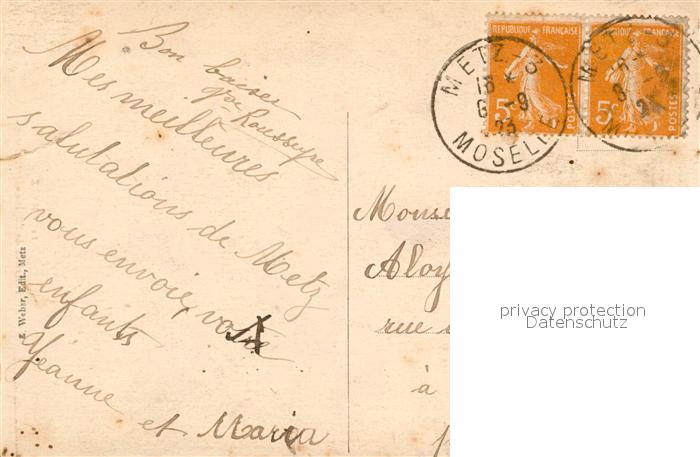 Bon baiser
Mes meilleures
salutations de Metz
vous envoie, votre
enfants
Jeanne
et Maria
E. Weber, Edit., Metz
REPUBLIQUE FRANÇAISE
5c
POSTES
FRANÇAISE
5c
POSTES
METZ - 3
MOSELLE
Aloy
rue
à
privacy protection
Datenschutz